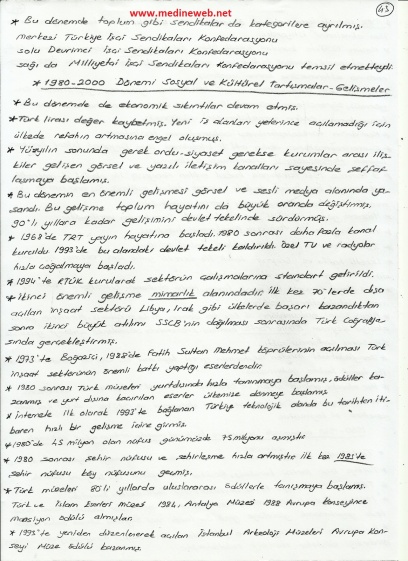 www.medineweb.net
45
* Bu dönemde toplum gibi sendikalar da kategorilere ayrılmış.
merkezi Türkiye İşçi Sendikaları Konfedarasyonu
solu Devrimci İşçi Sendikaları Konfedarasyonu
sağı da Milliyetçi İşçi Sendikaları Konfedarasyonu temsil etmekteydi.
* 1980-2000 Dönemi Sosyal ve Kültürel Tartışmalar-Gelişmeler
* Bu dönemde de ekonomik sıkıntılar devam etmiş.
* Türk lirası değer kaybetmiş. Yeni iş alanları yeterince açılamadığı için
ülkede refahın artmasına engel oluşmuş.
* Yüzyılın sonunda gerek ordu-siyaset gerekse kurumlar arası iliş-
kiler gelişen görsel ve yazılı iletişim kanalları sayesinde şeffaf
laşmaya başlamış.
* Bu dönemin en önemli gelişmesi görsel ve sesli medya alanında ya-
şandı. Bu gelişme toplum hayatını da büyük oranda değiştirmiş.
90'lı yıllara kadar gelişimini devlet tekelinde sürdürmüş.
* 1968'de TRT yayın hayatına başladı. 1980 sonrası daha fazla kanal
kuruldu. 1993'de bu alandaki devlet tekeli kaldırıldı. Özel TV ve radyolar
hızla çoğalmaya başladı.
* 1994'te RTÜK kurularak sektörün çalışmalarına standart getirildi.
* İkinci önemli gelişme mimarlık alanındadır. ilk kez 70'lerde dışa
açılan inşaat sektörü Libya, Irak gibi ülkelerde başarı kazandıktan
sonra ikinci büyük atılımı SSCB'nin dağılması sonrasında Türk Coğrafya-
sında gerçekleştirmiş.
* 1973'te Boğaziçi, 1988'de Fatih Sultan Mehmet köprülerinin açılması Türk
inşaat sektörünün önemli katkı yaptığı eserlerdendir.
* 1980 sonrası Türk müzeleri yurtdışında hızla tanınmaya başlamış, ödüller ka-
zanmış ve yurt dışına kaçırılan eserler ülkemize dönmeye başlamış.
* İnternete ilk olarak 1993'te bağlanan Türkiye teknolojik alanda bu tarihten iti-
baren hızlı bir gelişme içine girmiş.
* 1980'de 45 milyon olan nüfus günümüzde 75 milyonu aşmıştır
* 1980 sonrası şehir nüfusu ve şehirleşme hızla artmıştır ilk kez 1985'te
şehir nüfusu köy nüfusunu geçmiş.
* Türk müzeleri 80'li yıllarda uluslararası ödüllerle tanışmaya başlamış.
Türk ve İslam Eserleri müzesi 1984, Antalya Müzesi 1988 Avrupa Konseyince
mansiyon ödülü almışlar.
* 1993'te yeniden düzenlenerek açılan İstanbul Arkeoloji Müzeleri Avrupa Kon-
seyi Müze ödülü kazanmış.